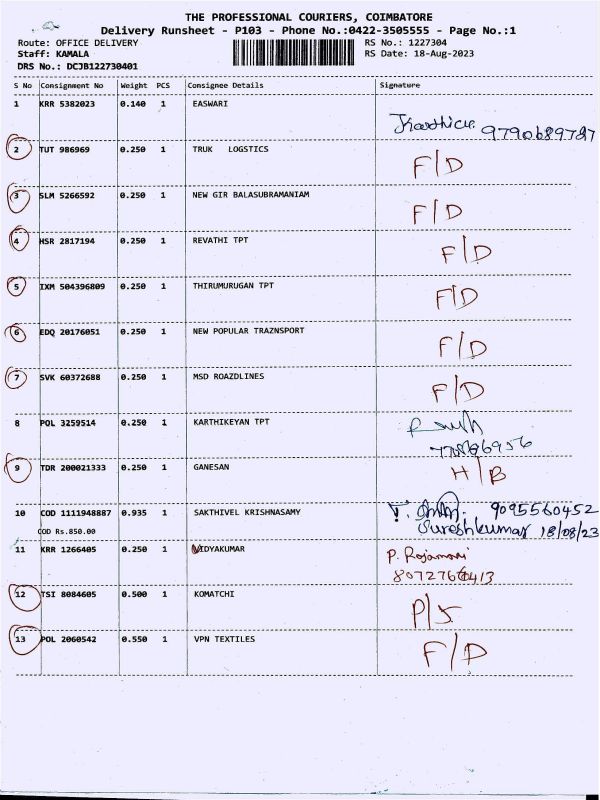 THE PROFESSIONAL COURIERS, COIMBATORE
Delivery Runsheet - P103 - Phone No.:0422-3505555 - Page No.:1
Route: OFFICE DELIVERY RS No.: 1227304
Staff: KAMALA RS Date: 18-Aug-2023
DRS No.: DCJB122730401
S No Consignment No Weight PCS Consignee Details Signature
1 KRR 5382023 0.140 1 EASWARI
Karthick 9790689787
2 TUT 986969 0.250 1 TRUK LOGSTICS
F/D
3 SLM 5266592 0.250 1 NEW GIR BALASUBRAMANIAM
F/D
4 HSR 2817194 0.250 1 REVATHI TPT
F/D
5 IXM 504396809 0.250 1 THIRUMURUGAN TPT
F/D
6 EDQ 20176051 0.250 1 NEW POPULAR TRAZNSPORT
F/D
7 SVK 60372688 0.250 1 MSD ROAZDLINES
F/D
8 POL 3259514 0.250 1 KARTHIKEYAN TPT
9 TDR 200021333 0.250 1 GANESAN
H/B
10 COD 1111948887 0.935 1 SAKTHIVEL KRISHNASAMY 9095560452
COD Rs.850.00 Sureshkumar 18/08/23
11 KRR 1266405 0.250 1 VIDYAKUMAR P. Rajamani
12 TSI 8084605 0.500 1 KOMATCHI
13 POL 2060542 0.550 1 VPN TEXTILES
F/D